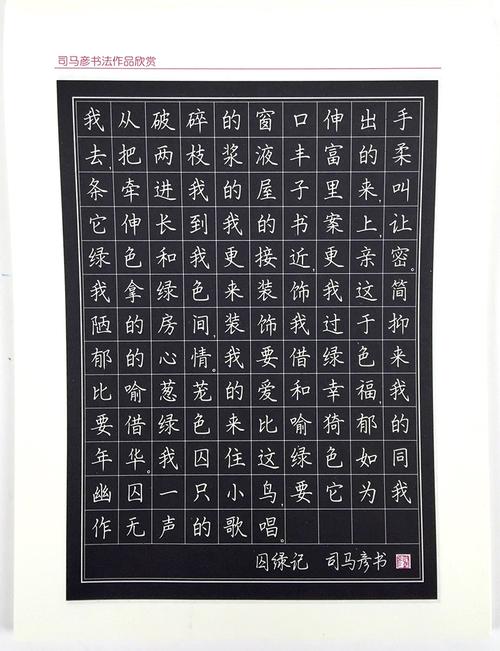 司马彦书法作品欣赏
我从破碎的窗口伸出手
去,把两枝浆液丰富的柔
条牵进我的屋子里来,叫
它伸长到我的书案上,让
绿色和我更接近,更亲密。
我拿绿色来装饰我这简
陋的房间,装饰我过于抑
郁的心情。我要借绿色来
比喻葱茏的爱和幸福,我
要借绿色来比喻猗郁的
年华。我囚住这绿色如同
幽囚一只小鸟,要它为我
作无声的歌唱。
囚绿记 司马彦书